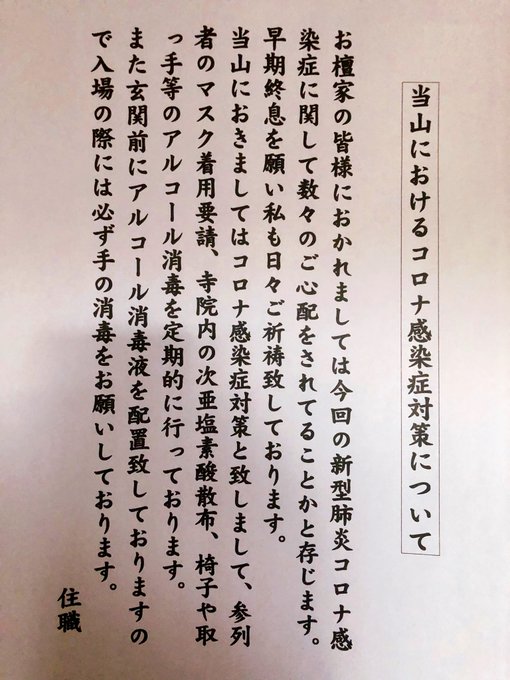 当山におけるコロナ感染症対策について
お檀家の皆様におかれましては今回の新型肺炎コロナ感
染症に関して数々のご心配をされてることかと存じます。
早期終息を願い私も日々ご祈祷致しております。
当山におきましてはコロナ感染症対策と致しまして、参列
者のマスク着用要請、寺院内の次亜塩素酸散布、椅子や取
っ手等のアルコール消毒を定期的に行っております。
また玄関前にアルコール消毒液を配置致しておりますの
で入場の際には必ず手の消毒をお願いしております。
住職